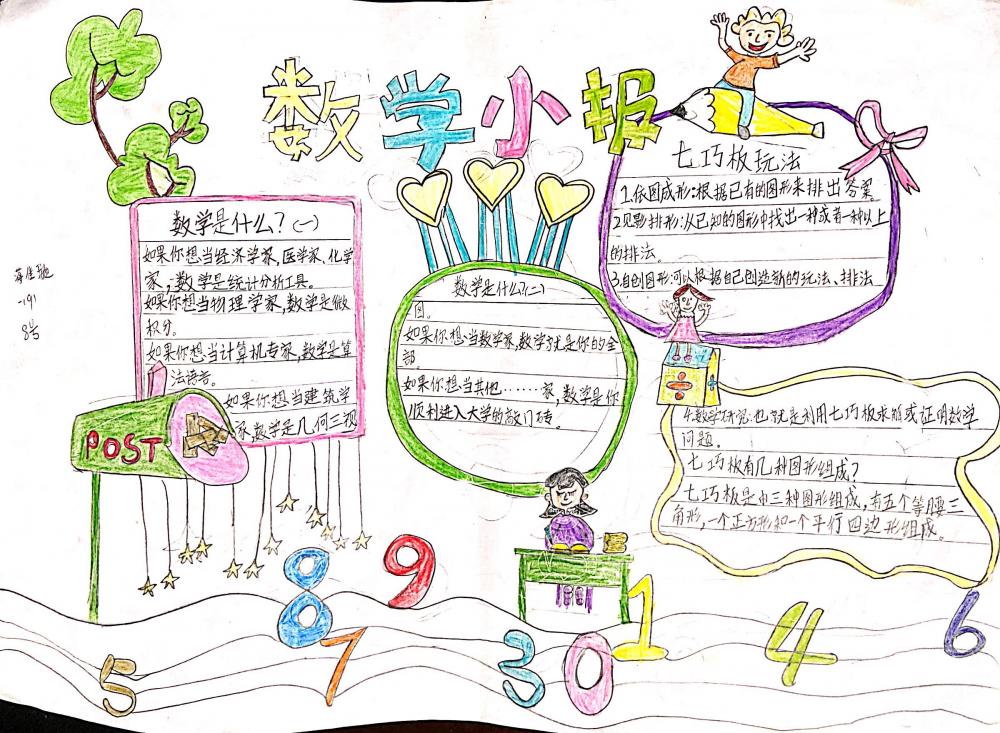 数学小报
数学是什么？(一)
如果你想当经济学家、医学家、化学
家，数学是统计分析工具。
如果你想当物理学家，数学是做
积分。
如果你想当计算机专家，数学是算
法语言。
如果你想当建筑学
家，数学是几何三视
POST
数学是什么？(二)
图。
如果你想当数学家，数学就是你的全
部。
如果你想当其他……家，数学是你
顺利进入大学的敲门砖。
七巧板玩法
1.依图成形：根据已有的图形来排出答案。
2.见影排形：从已知的图形中找出一种或者一种以上
的排法。
3.自创图形：可以根据自己创造新的玩法、排法
4.数学研究：也就是利用七巧板求解或证明数学
问题。
七巧板有几种图形组成？
七巧板是由三种图形组成，有五个等腰三
角形，一个正方形和一个平行四边形组成。
191
8号
8
9
5
7
3
0
1
4
6